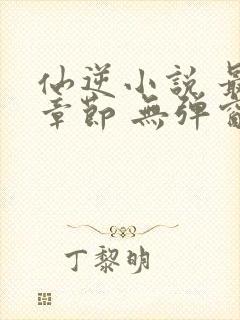 仙逆小說 最
章節 無彈窗
丁黎明